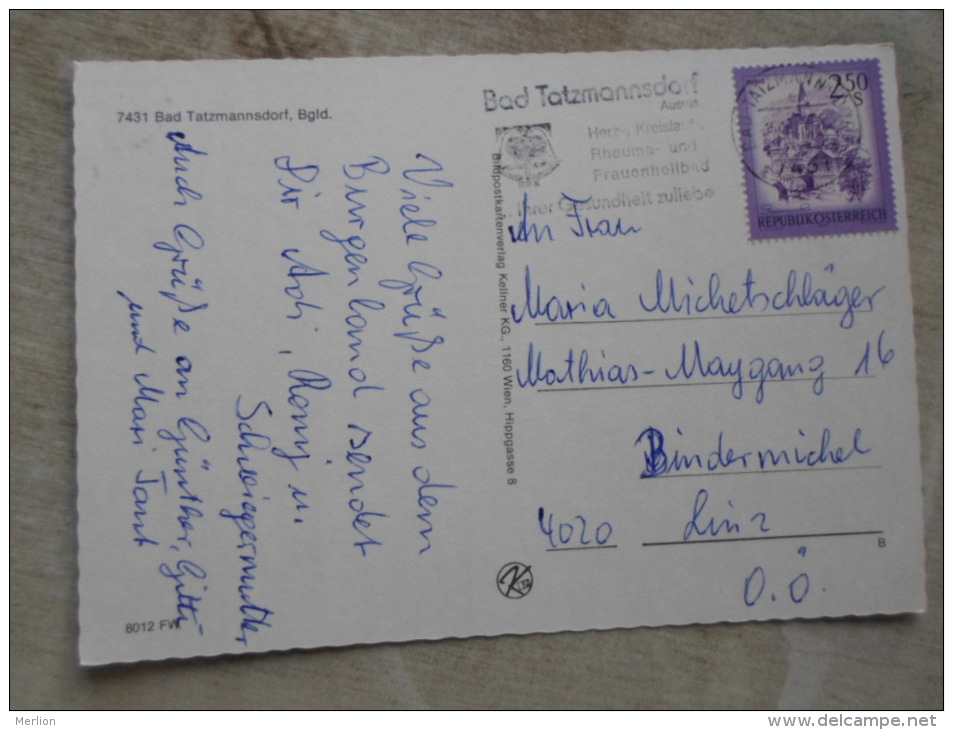 7431 Bad Tatzmannsdorf, Bgld.
Viele Grüße aus dem
Burgenland sendet
Dir Adi, Romy u.
Schwiegermutter
Auch Grüße an Günther, Gitti
und Maxi Tant
8012 FW
Bildpostkartenverlag Kellner KG., 1160 Wien, Hippgasse 8
Bad Tatzmannsdorf
Austria
Herz-, Kreislauf-,
Rheuma- und
Frauenheilbad
... Ihrer Gesundheit zuliebe
2.50
S
REPUBLIK ÖSTERREICH
An Frau
Maria Michetschläger
Mathias-Maygang 16
Bindermichel
4020 Linz
O.Ö.
B
K
Merlion
www.delcampe.net